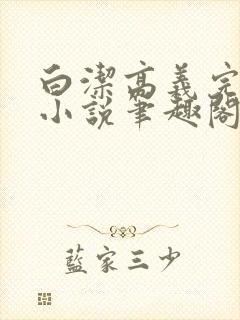 白潔高義完
小說筆趣閣
藍家三少